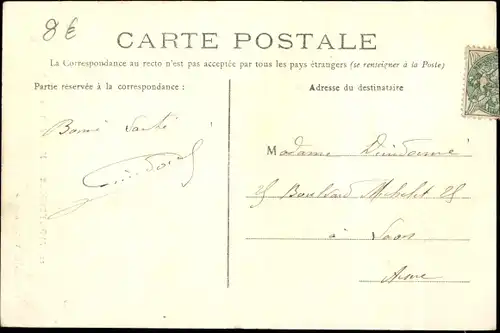 8€
CARTE POSTALE
La Correspondance au recto n'est pas acceptée par tous les pays étrangers (se renseigner à la Poste)
Partie réservée à la correspondance :
Adresse du destinataire
Bonne santé
Madame
25 Boulevard Michelet 25
à Laon
Aisne